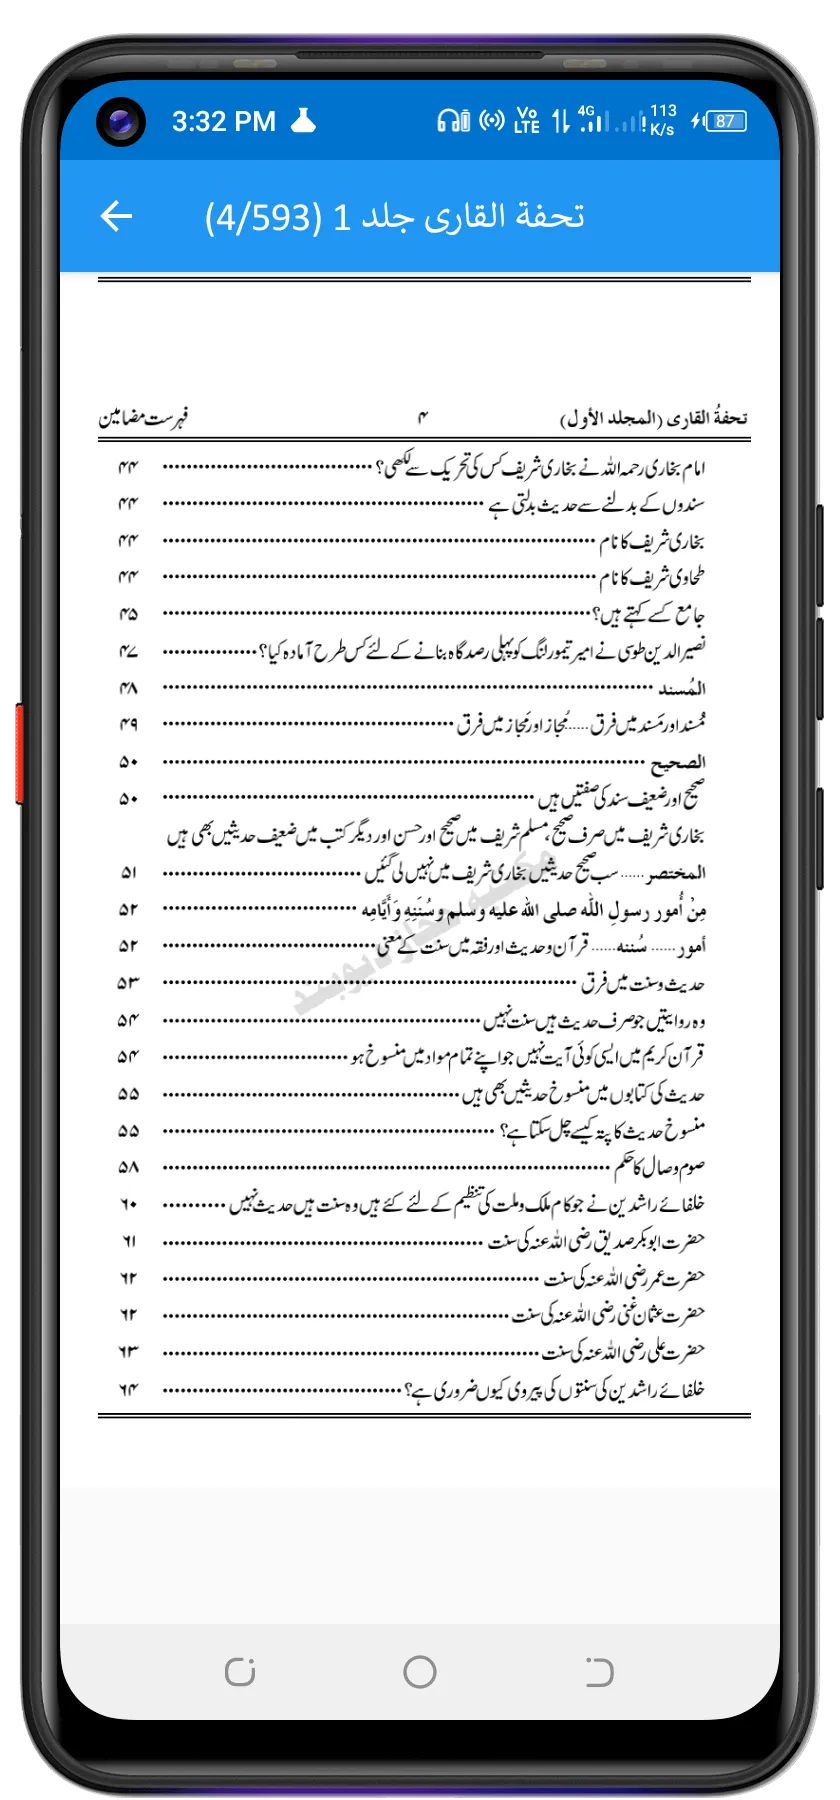 3:32 PM
Vo LTE 4G 113 K/s 87
تحفة القاری جلد 1 (4/593)
تحفةُ القاری (المجلد الأول) ۴ فہرست مضامین
امام بخاری رحمہ اللہ نے بخاری شریف کس کی تحریک سے لکھی؟ ۴۴
سندوں کے بدلنے سے حدیث بدلتی ہے ۴۴
بخاری شریف کا نام ۴۴
طحاوی شریف کا نام ۴۴
جامع کسے کہتے ہیں؟ ۴۵
نصیر الدین طوسی نے امیر تیمور لنگ کو پہلی رصد گاہ بنانے کے لئے کس طرح آمادہ کیا؟ ۴۷
المُسند ۴۸
مُسند اور مَسند میں فرق ...... مُجاز اور مَجاز میں فرق ۴۹
الصحیح ۵۰
صحیح اور ضعیف سند کی صفتیں ہیں ۵۰
بخاری شریف میں صرف صحیح، مسلم شریف میں صحیح اور حسن اور دیگر کتب میں ضعیف حدیثیں بھی ہیں
المختصر ...... سب صحیح حدیثیں بخاری شریف میں نہیں لی گئیں ۵۱
مِنْ أُمور رسولِ اللّٰه صلی اللّٰه علیه وسلم وسُنَنِهِ وَأَیَّامِه ۵۲
أمور ...... سُننه ...... قرآن وحدیث اور فقہ میں سنت کے معنی ۵۲
حدیث وسنت میں فرق ۵۳
وہ روایتیں جو صرف حدیث ہیں سنت نہیں ۵۴
قرآن کریم میں ایسی کوئی آیت نہیں جو اپنے تمام مواد میں منسوخ ہو ۵۴
حدیث کی کتابوں میں منسوخ حدیثیں بھی ہیں ۵۵
منسوخ حدیث کا پتہ کیسے چل سکتا ہے؟ ۵۵
صوم وصال کا حکم ۵۸
خلفائے راشدین نے جو کام ملک وملت کی تنظیم کے لئے کئے ہیں وہ سنت ہیں حدیث نہیں ۶۰
حضرت ابوبکر صدیق رضی اللہ عنہ کی سنت ۶۱
حضرت عمر رضی اللہ عنہ کی سنت ۶۲
حضرت عثمان غنی رضی اللہ عنہ کی سنت ۶۲
حضرت علی رضی اللہ عنہ کی سنت ۶۳
خلفائے راشدین کی سنتوں کی پیروی کیوں ضروری ہے؟ ۶۴